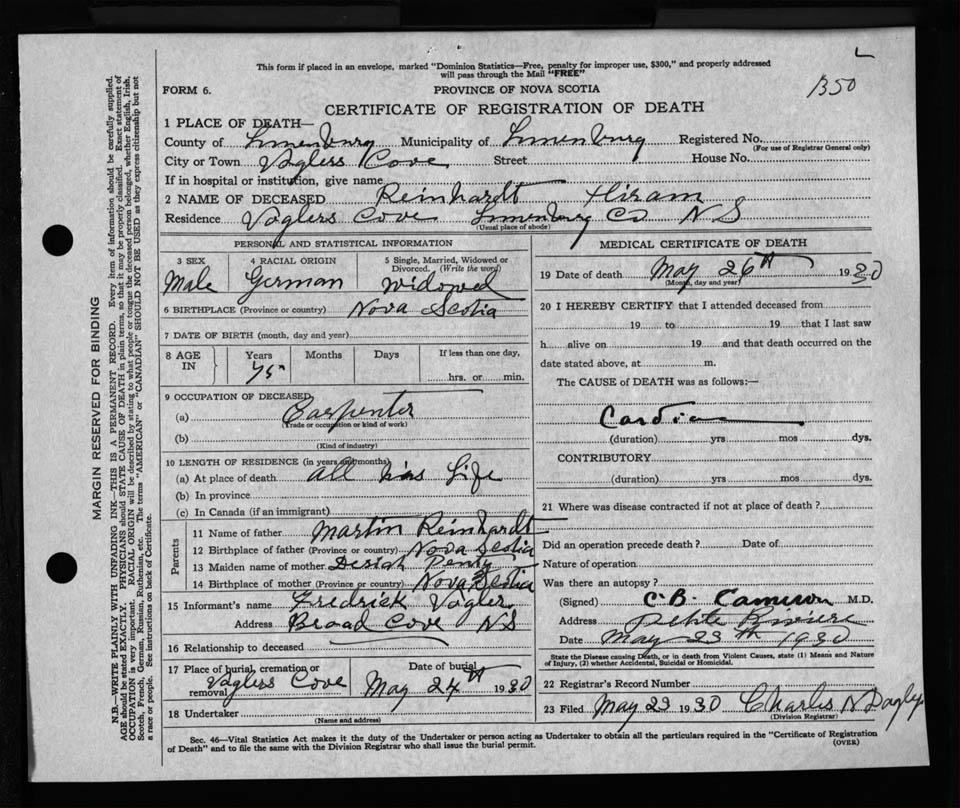 This form if placed in an envelope, marked "Dominion Statistics—Free, penalty for improper use, $300," and properly addressed
will pass through the Mail "FREE"
1350
FORM 6.
PROVINCE OF NOVA SCOTIA
CERTIFICATE OF REGISTRATION OF DEATH
1 PLACE OF DEATH—
County of Lunenburg Municipality of Lunenburg Registered No.
(For use of Registrar General only)
City or Town Voglers Cove Street House No.
If in hospital or institution, give name
2 NAME OF DECEASED Reinhardt Hiram
Residence Voglers Cove Lunenburg Co N S
(Usual place of abode)
PERSONAL AND STATISTICAL INFORMATION
3 SEX 4 RACIAL ORIGIN 5 Single, Married, Widowed or
Divorced. (Write the word)
Male German Widowed
6 BIRTHPLACE (Province or country) Nova Scotia
7 DATE OF BIRTH (month, day and year)
8 AGE IN Years Months Days If less than one day,
75 hrs. or min.
9 OCCUPATION OF DECEASED
(a) Carpenter
(Trade or occupation or kind of work)
(b)
(Kind of industry)
10 LENGTH OF RESIDENCE (in years and months)
(a) At place of death all his Life
(b) In province
(c) In Canada (if an immigrant)
Parents
11 Name of father Martin Reinhardt
12 Birthplace of father (Province or country) Nova Scotia
13 Maiden name of mother Desiah
14 Birthplace of mother (Province or country) Nova Scotia
15 Informant's name Fredrick Vogler
Address Broad Cove N S
16 Relationship to deceased
17 Place of burial, cremation or removal Voglers Cove
Date of burial May 24th 1930
18 Undertaker
(Name and address)
MEDICAL CERTIFICATE OF DEATH
19 Date of death May 26th 1930
(Month, day and year)
20 I HEREBY CERTIFY that I attended deceased from
19 to 19 that I last saw
h alive on 19 and that death occurred on the
date stated above, at m.
The CAUSE OF DEATH was as follows:—
Cardiac
(duration) yrs mos dys.
CONTRIBUTORY
(duration) yrs mos dys.
21 Where was disease contracted if not at place of death?
Did an operation precede death? Date of
Nature of operation
Was there an autopsy?
(Signed) C.B. Cameron M.D.
Address Petite Riviere
Date May 23th 1930
State the Disease causing Death, or in death from Violent Causes, state (1) Means and Nature
of Injury, (2) whether Accidental, Suicidal or Homicidal.
22 Registrar's Record Number
23 Filed May 23 1930 Charles N Dagley
(Division Registrar)
Sec. 46—Vital Statistics Act makes it the duty of the Undertaker or person acting as Undertaker to obtain all the particulars required in the "Certificate of Registration
of Death" and to file the same with the Division Registrar who shall issue the burial permit.
(OVER)
MARGIN RESERVED FOR BINDING
N.B.—WRITE PLAINLY WITH UNFADING INK—THIS IS A PERMANENT RECORD. Every item of information should be carefully supplied.
AGE should be stated EXACTLY. PHYSICIANS should STATE CAUSE OF DEATH in plain terms, so that it may be properly classified. Exact statement of
OCCUPATION is very important. RACIAL ORIGIN will be described by stating to what people or tongue the deceased person belonged, whether English, Irish,
Scotch, French, German, Russian, Ruthenian, etc. The terms "AMERICAN" or "CANADIAN" SHOULD NOT BE USED as they express citizenship but not
a race or people. See instructions on back of Certificate.